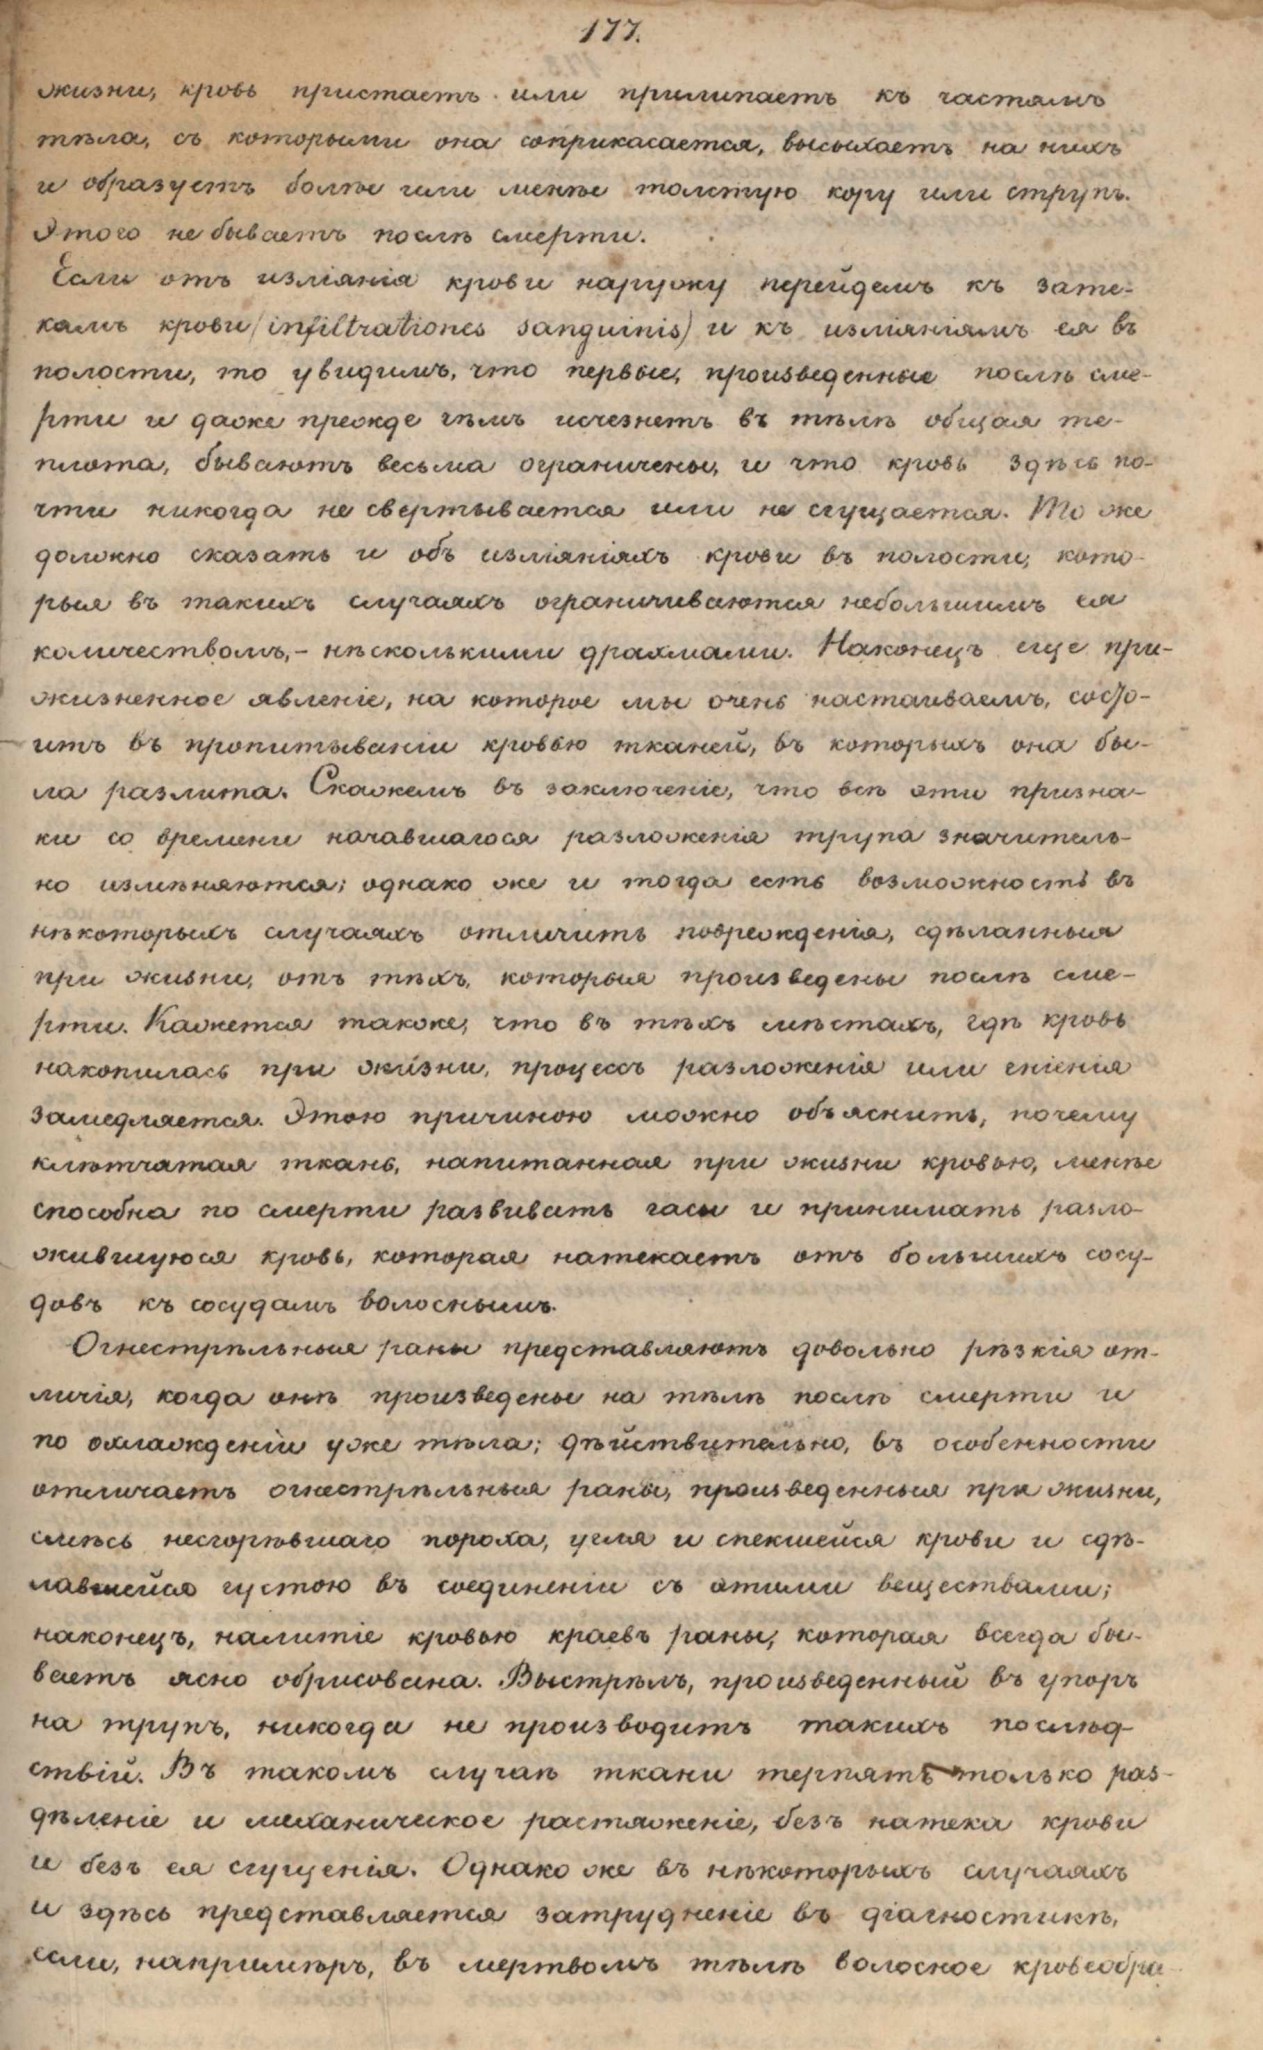 177.
жизни, кровь пристаетъ или прилипаетъ къ частямъ
тѣла, съ которыми она соприкасается, высыхаетъ на нихъ
и образуетъ болѣе или менѣе толстую кору или струпъ.
Этого не бываетъ послѣ смерти.
Если отъ изліянія крови наружу перейдемъ къ зате-
камъ крови (infiltrationes sanguinis) и къ изліяніямъ ея въ
полости, то увидимъ, что первые, произведенные послѣ сме-
рти и даже прежде чѣмъ исчезнетъ въ тѣлѣ общая те-
плота, бываютъ весьма ограничены, и что кровь здѣсь по-
чти никогда не свертывается или не сгущается. То же
должно сказать и объ изліяніяхъ крови въ полости, кото-
рыя въ такихъ случаяхъ ограничиваются небольшимъ ея
количествомъ,- нѣсколькими драхмами. Наконецъ еще при-
жизненное явленіе, на которое мы очень настаиваемъ, состо-
итъ въ пропитываніи кровью тканей, въ которыхъ она бы-
ла разлита. Скажемъ въ заключеніе, что всѣ эти призна-
ки со времени начавшагося разложенія трупа значитель-
но измѣняются; однако же и тогда есть возможность въ
нѣкоторыхъ случаяхъ отличить поврежденія, сдѣланныя
при жизни, отъ тѣхъ, которыя произведены послѣ сме-
рти. Кажется также, что въ тѣхъ мѣстахъ, гдѣ кровь
накопилась при жизни, процессъ разложенія или гніенія
замедляется. Этою причиною можно объяснить, почему
клѣтчатая ткань, напитанная при жизни кровью, менѣе
способна по смерти развивать газы и принимать разло-
жившуюся кровь, которая натекаетъ отъ большихъ сосу-
довъ къ сосудамъ волоснымъ.
Огнестрѣльныя раны представляютъ довольно рѣзкія от-
личія, когда онѣ произведены на тѣлѣ послѣ смерти и
по охлажденіи уже тѣла; дѣйствительно, въ особенности
отличаетъ огнестрѣльныя раны, произведенныя при жизни,
смѣсь несгорѣвшаго пороха, угля и спекшейся крови и сдѣ-
лавшейся густою въ соединеніи съ этими веществами;
наконецъ, налитіе кровью краевъ раны, которая всегда бы-
ваетъ ясно обрисована. Выстрѣлъ, произведенный въ упоръ
на трупъ, никогда не производитъ такихъ послѣд-
ствій. Въ такомъ случаѣ ткани терпятъ только раз-
дѣленіе и механическое растяженіе, безъ натека крови
и безъ ея сгущенія. Однако же въ нѣкоторыхъ случаяхъ
и здѣсь представляется затрудненіе въ діагностикѣ,
если, напримѣръ, въ мертвомъ тѣлѣ волосное кровеобра-